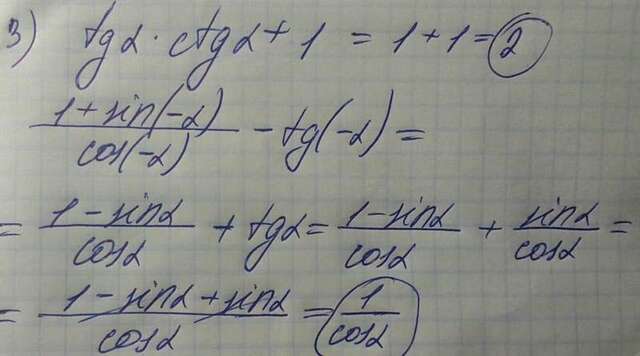 3) tgα · ctgα + 1 = 1 + 1 = 2
(1 + sin(-α))/cos(-α) - tg(-α) =
= (1 - sinα)/cosα + tgα = (1 - sinα)/cosα + sinα/cosα =
= (1 - sinα + sinα)/cosα = 1/cosα